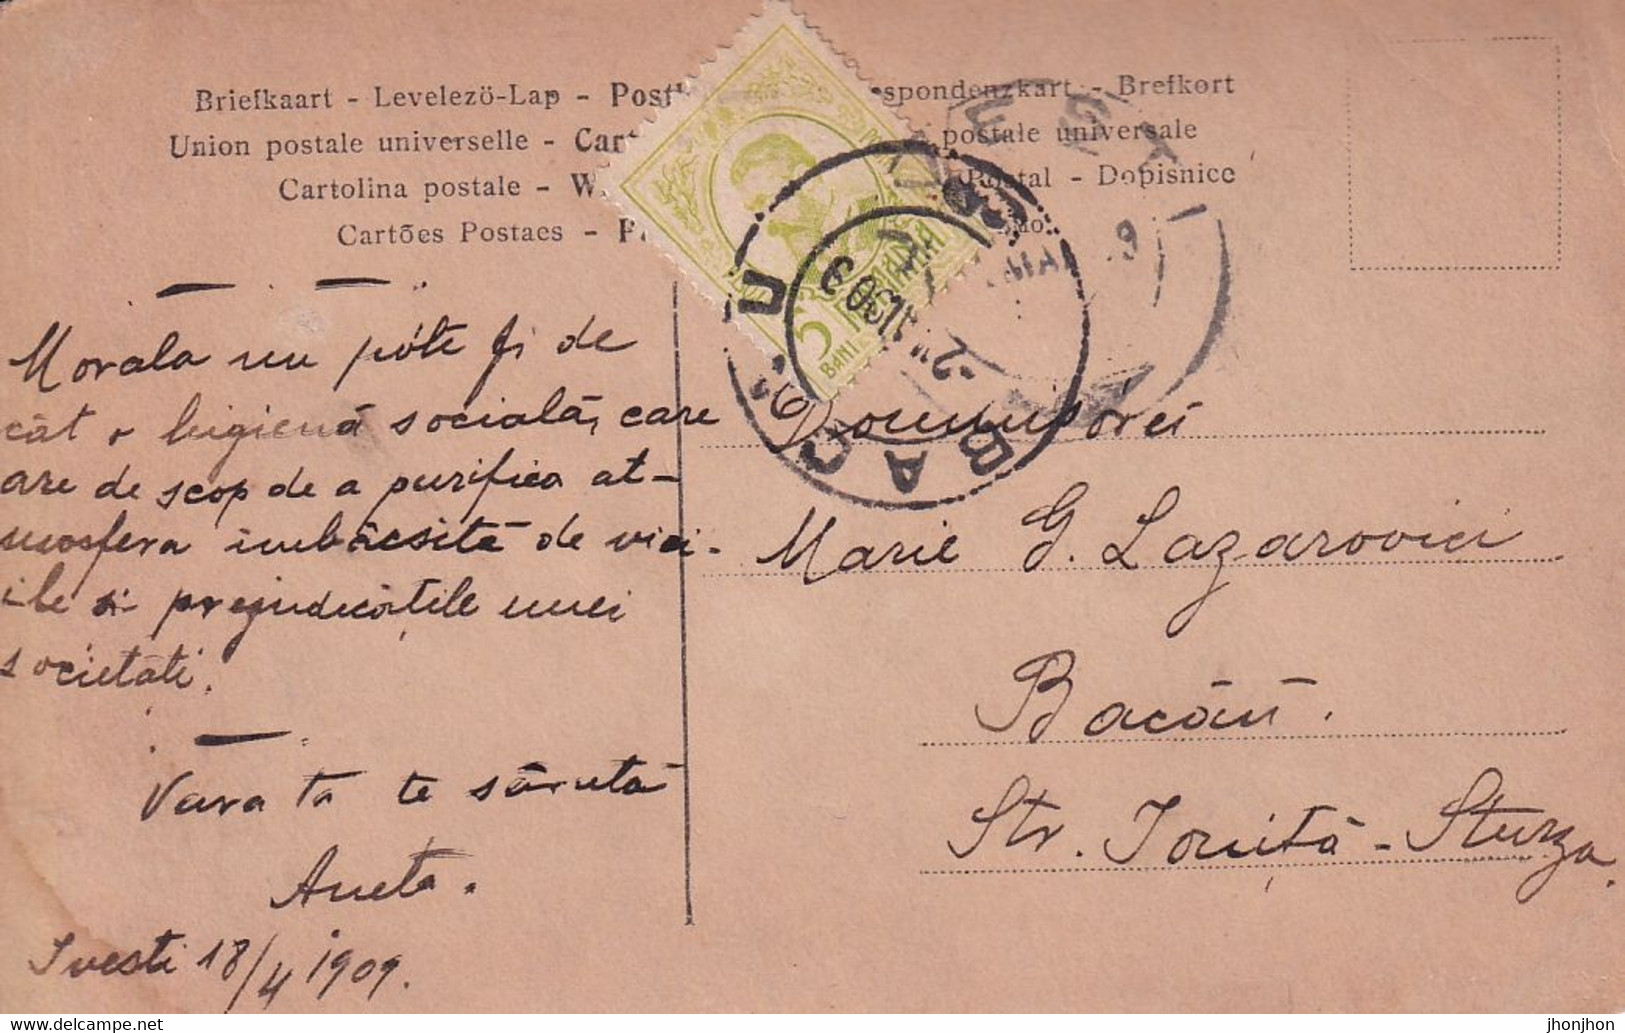 Briefkaart - Levelezö-Lap - Post spondenzkart - Brefkort
Union postale universelle - Car postale universale
Cartolina postale - W Postal - Dopisnice
Cartões Postaes - P
Morala nu póte fi de
cât o higienă socială, care
are de scop de a purifica at-
mosfera îmbâcsită de vici-
ile si prejudicățile unei
societăti.
Vara ta te sărută
Aneta.
Ivesti 18/4 1909.
5 BANI
BACĂU
Domnisórei
Marie G. Lazarovici
Bacăŭ.
Str. Ioniță-Sturza.
www.delcampe.net
jhonjhon